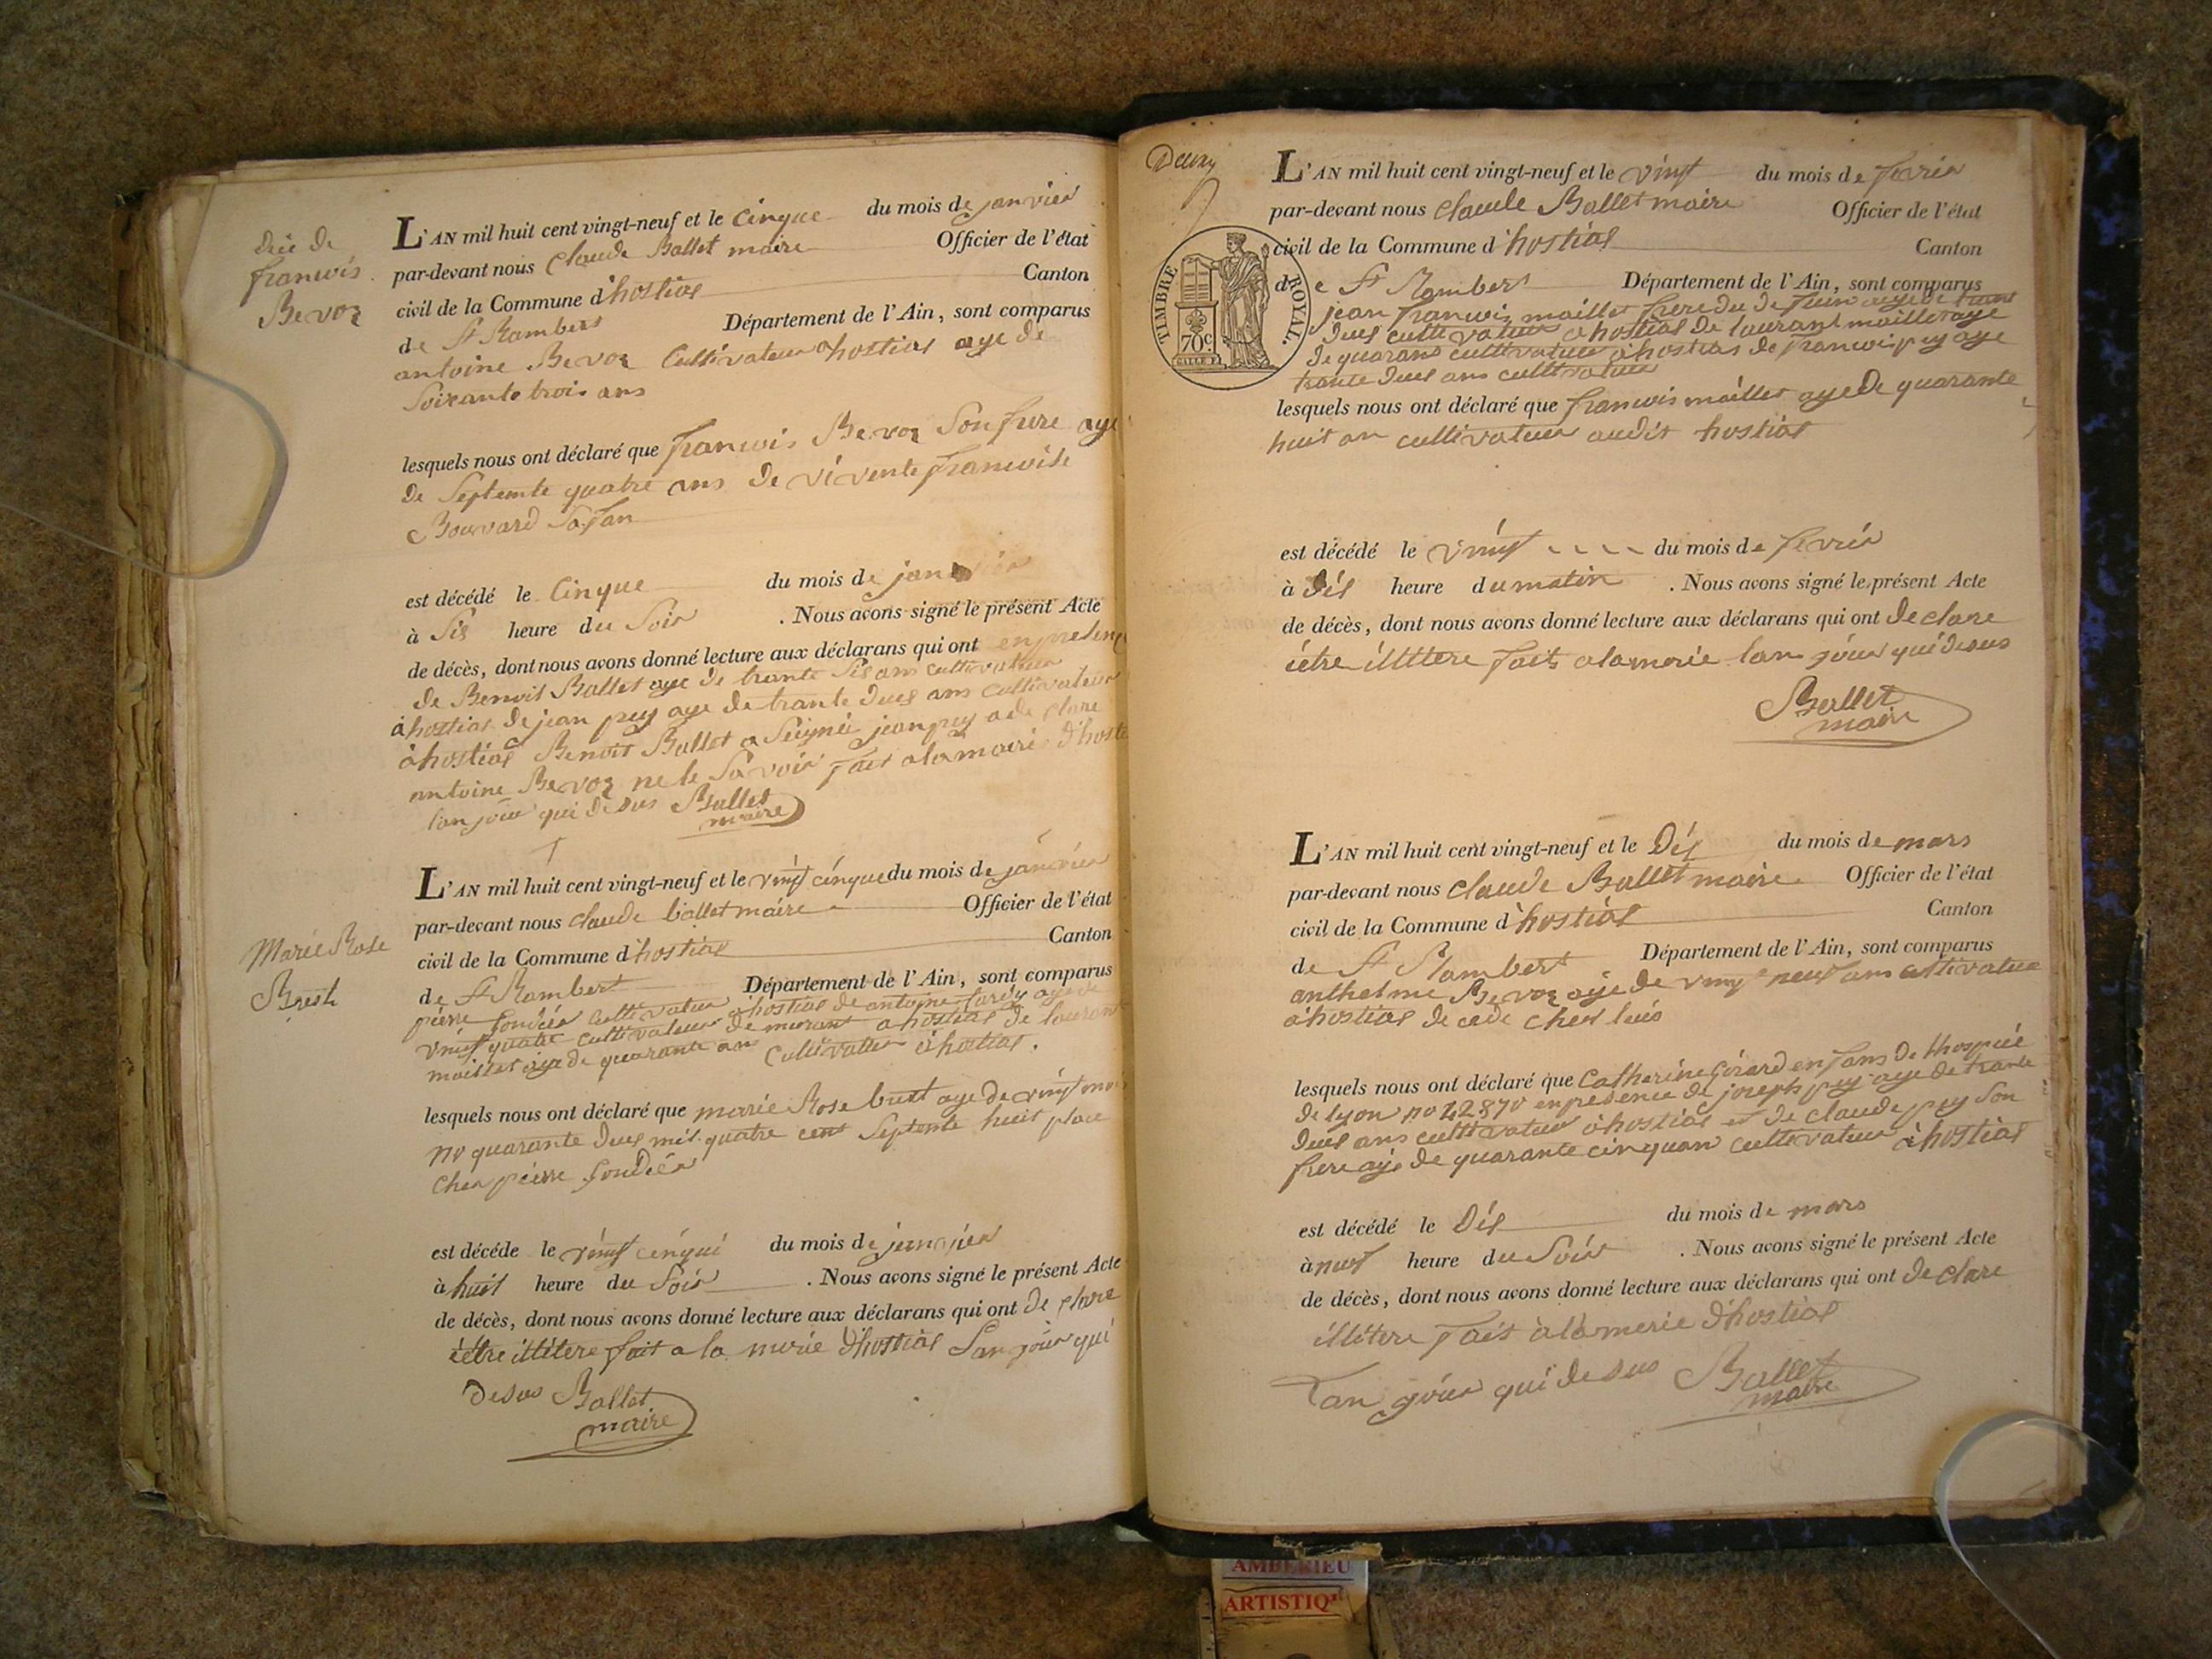 Dcé de
francois
Bevoz
L'AN mil huit cent vingt-neuf et le cinque du mois de janvier
par-devant nous Claude Ballet maire Officier de l'état
civil de la Commune d'hostias Canton
de St Rambert Département de l'Ain, sont comparus
antoine Bevoz Cultivateur a hostias aye de
Soixante trois ans
lesquels nous ont déclaré que francois Bevoz Son frere aye
de Septente quatre ans de vivente francoise
Bouvard Sa fan
est décédé le Cinque du mois de janvier
à Sis heure du Soir . Nous avons signé le présent Acte
de décès, dont nous avons donné lecture aux déclarans qui ont en presence
de Benoit Ballet aye de trante Sis ans cultivateur
à hostias de jean pey aye de trante dues ans cultivateur
à hostias Benoit Ballet a Seignié jean pey a de clare
antoine Bevoz ne le Savoir fait a la mairie d'hostias
lan jour qui desus Ballet
maire
L'AN mil huit cent vingt-neuf et le vingt cinque du mois de janvier
par-devant nous claude ballet maire Officier de l'état
civil de la Commune d'hostias Canton
Marie Rose
Brest
de St Rambert Département de l'Ain, sont comparus
pierre cultivateur à hostias de antoine aye de
vingt quatre cultivateur de murant a hostias de laurant
maillet aye de quarante ans cultivateur à hostias.
lesquels nous ont déclaré que marie Rose aye de vingt mois
no quarante dues mil quatre cent Septente huit place
ches pierre
est décédé le vingt cinque du mois de janvier
à huit heure du Soir . Nous avons signé le présent Acte
de décès, dont nous avons donné lecture aux déclarans qui ont de clare
iétre illitere fait a la merie d'hostias Lan jour qui
desus Ballet
maire
L'AN mil huit cent vingt-neuf et le vingt du mois de fevrier
par-devant nous claude Ballet maire Officier de l'état
civil de la Commune d'hostias Canton
TIMBRE ROYAL.
70c.
de St Rambert Département de l'Ain, sont comparus
jean francois maillet frere du defun aye de trante
dues cultivateur a hostias de laurant maillet aye
de quarant cultivateur à hostias de francois pey aye
trante dues ans cultivateur
lesquels nous ont déclaré que francois maillet aye de quarante
huit an cultivateur audit hostias
est décédé le vingt du mois de fevrier
à Dés heure du matin . Nous avons signé le présent Acte
de décès, dont nous avons donné lecture aux déclarans qui ont de clare
iétre illitere fait a la merie lan jour qui desus
Ballet
maire
L'AN mil huit cent vingt-neuf et le Dés du mois de mars
par-devant nous claude Ballet maire Officier de l'état
civil de la Commune d'hostias Canton
de St Rambert Département de l'Ain, sont comparus
anthelme Bevoz aye de vingt neuf ans cultivateur
à hostias de cede ches luis
lesquels nous ont déclaré que Catherine Girard enfans de lhospice
de lyon no 42870 en presence de joseph pey aye de trante
dues ans cultivateur à hostias et de claude pey Son
frere aye de quarante cinquan cultivateur à hostias
est décédé le Dés du mois de mars
à nuf heure du Soir . Nous avons signé le présent Acte
de décès, dont nous avons donné lecture aux déclarans qui ont de clare
illitere fait à la merie d'hostias
lan jour qui desus Ballet
maire
AMBERIEU
ARTISTIQ